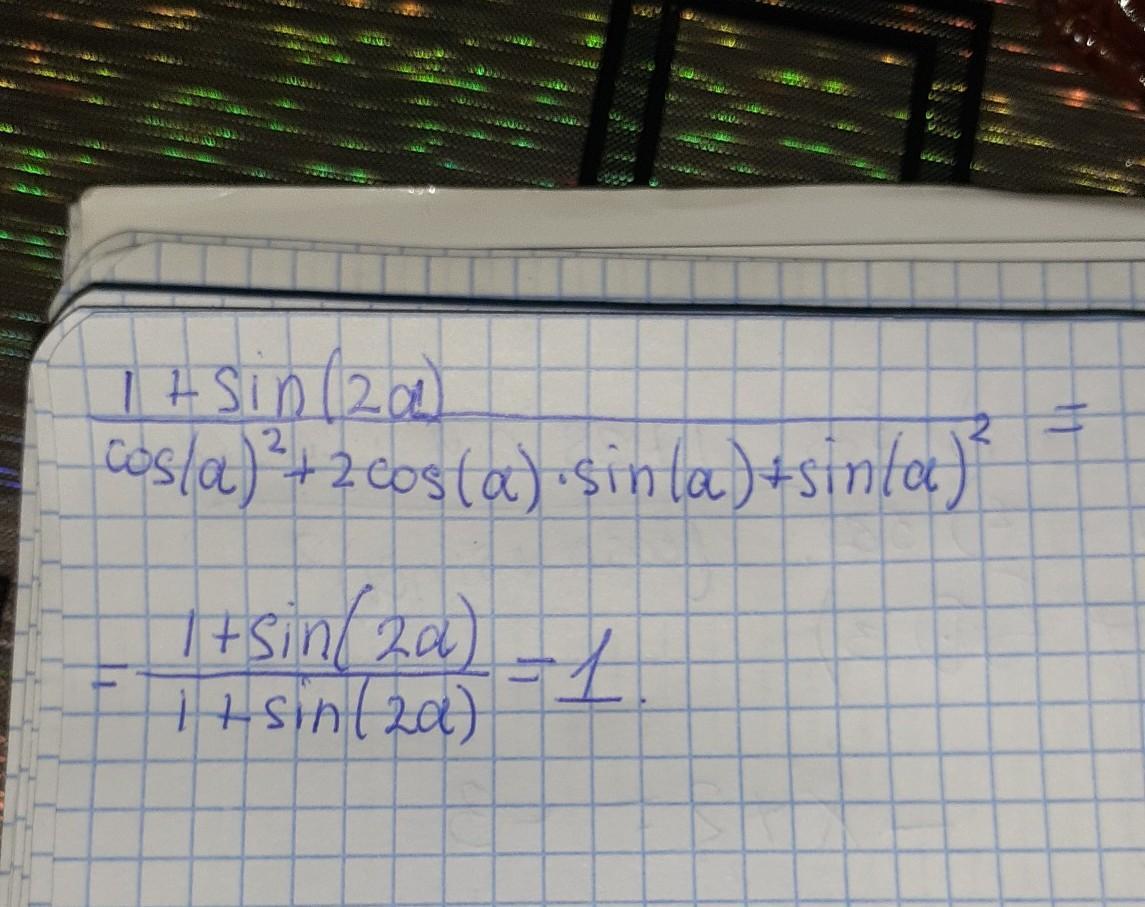 1 + sin(2a)
cos(a)² + 2cos(a)·sin(a)+sin(a)² =
= 1+sin(2a)
1+sin(2a) = 1.